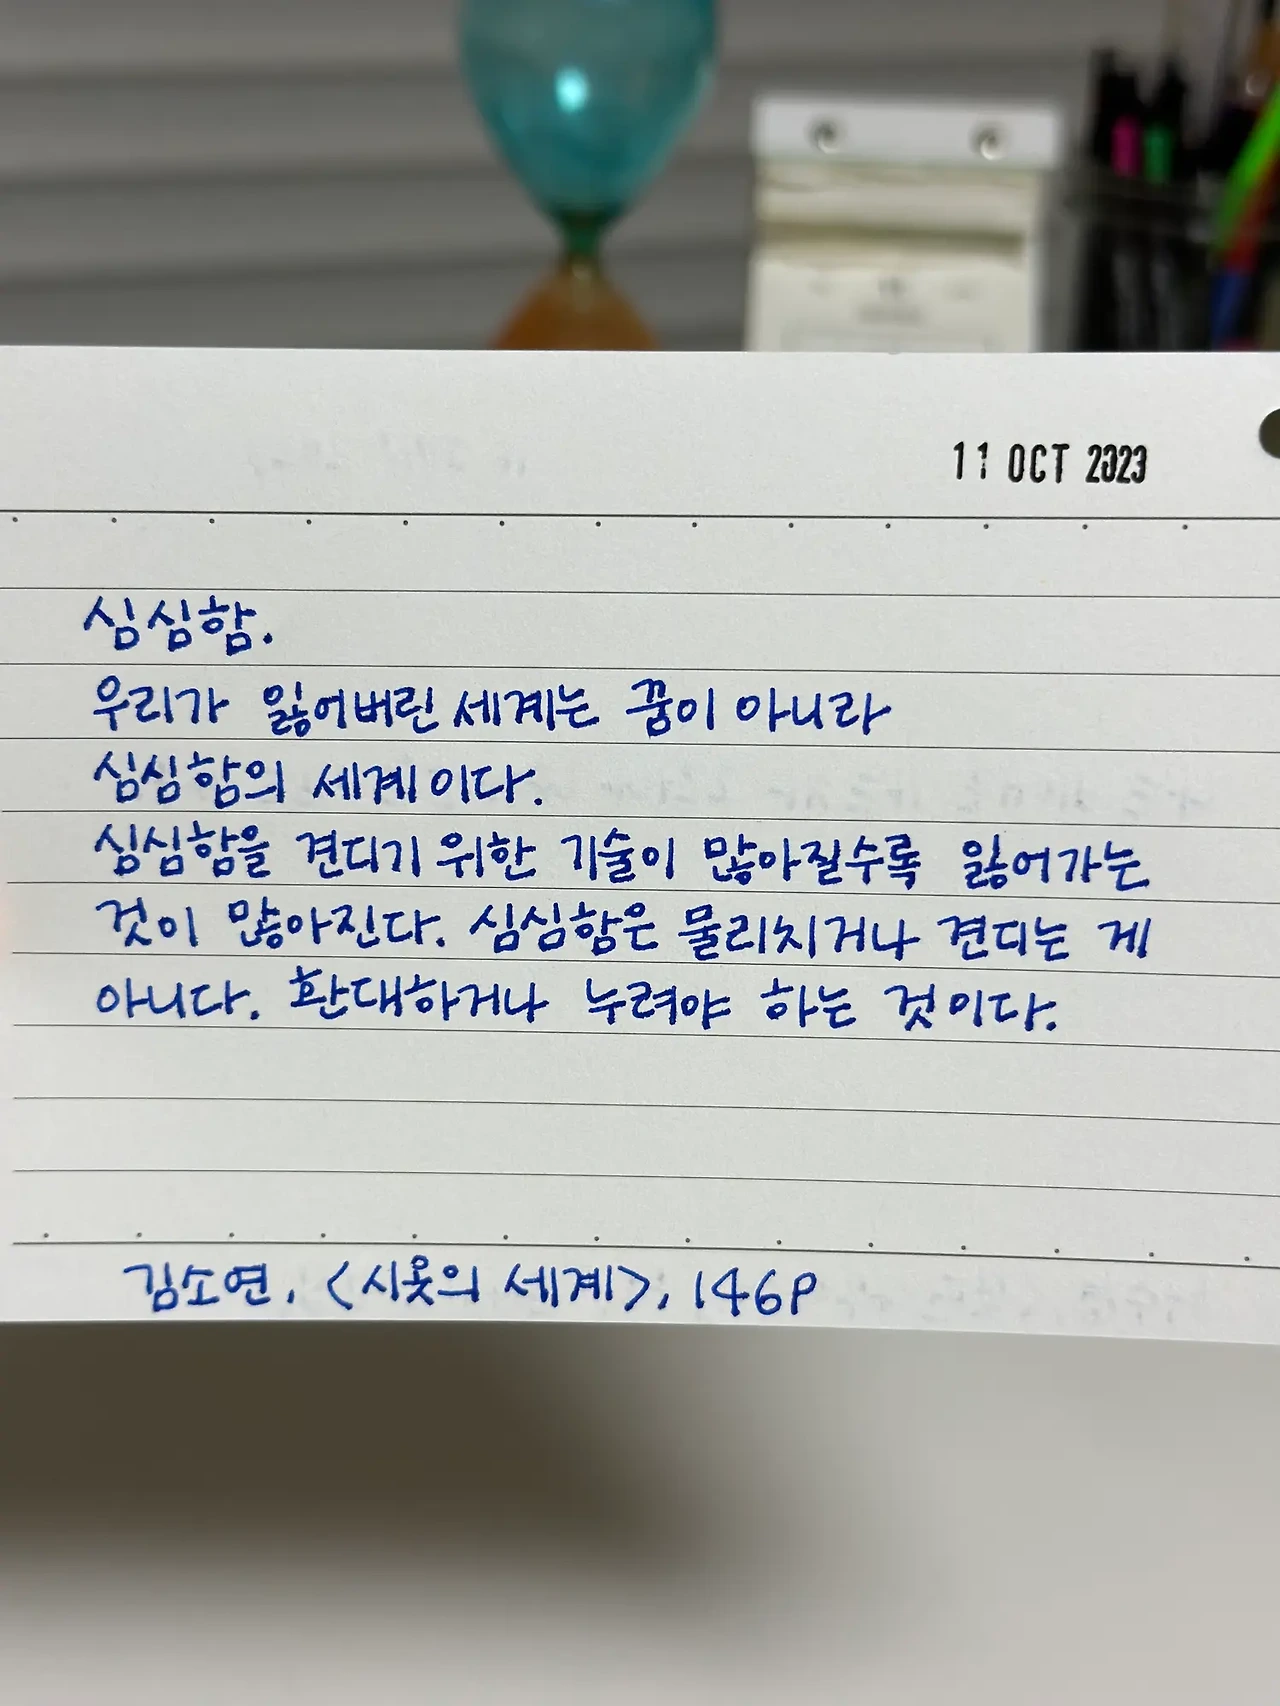 11 OCT 2023
심심함.
우리가 잃어버린 세계는 꿈이 아니라
심심함의 세계이다.
심심함을 견디기 위한 기술이 많아질수록 잃어가는
것이 많아진다. 심심함은 물리치거나 견디는 게
아니다. 환대하거나 누려야 하는 것이다.
김소연, <시옷의 세계>, 146p